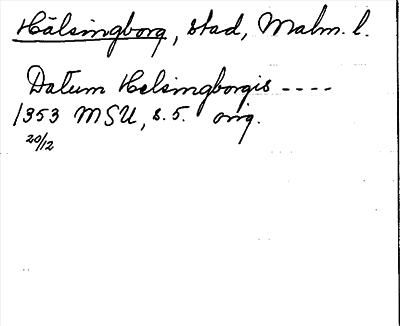 Hälsingborg, stad, Malm. l.
Datum Helsingborgis ----
1353 MSU, s. 5. orig.
20/12